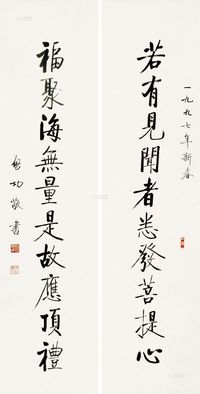 一九九七年新春
若有見聞者悉發菩提心
福聚海無量是故應頂禮
啓功敬書